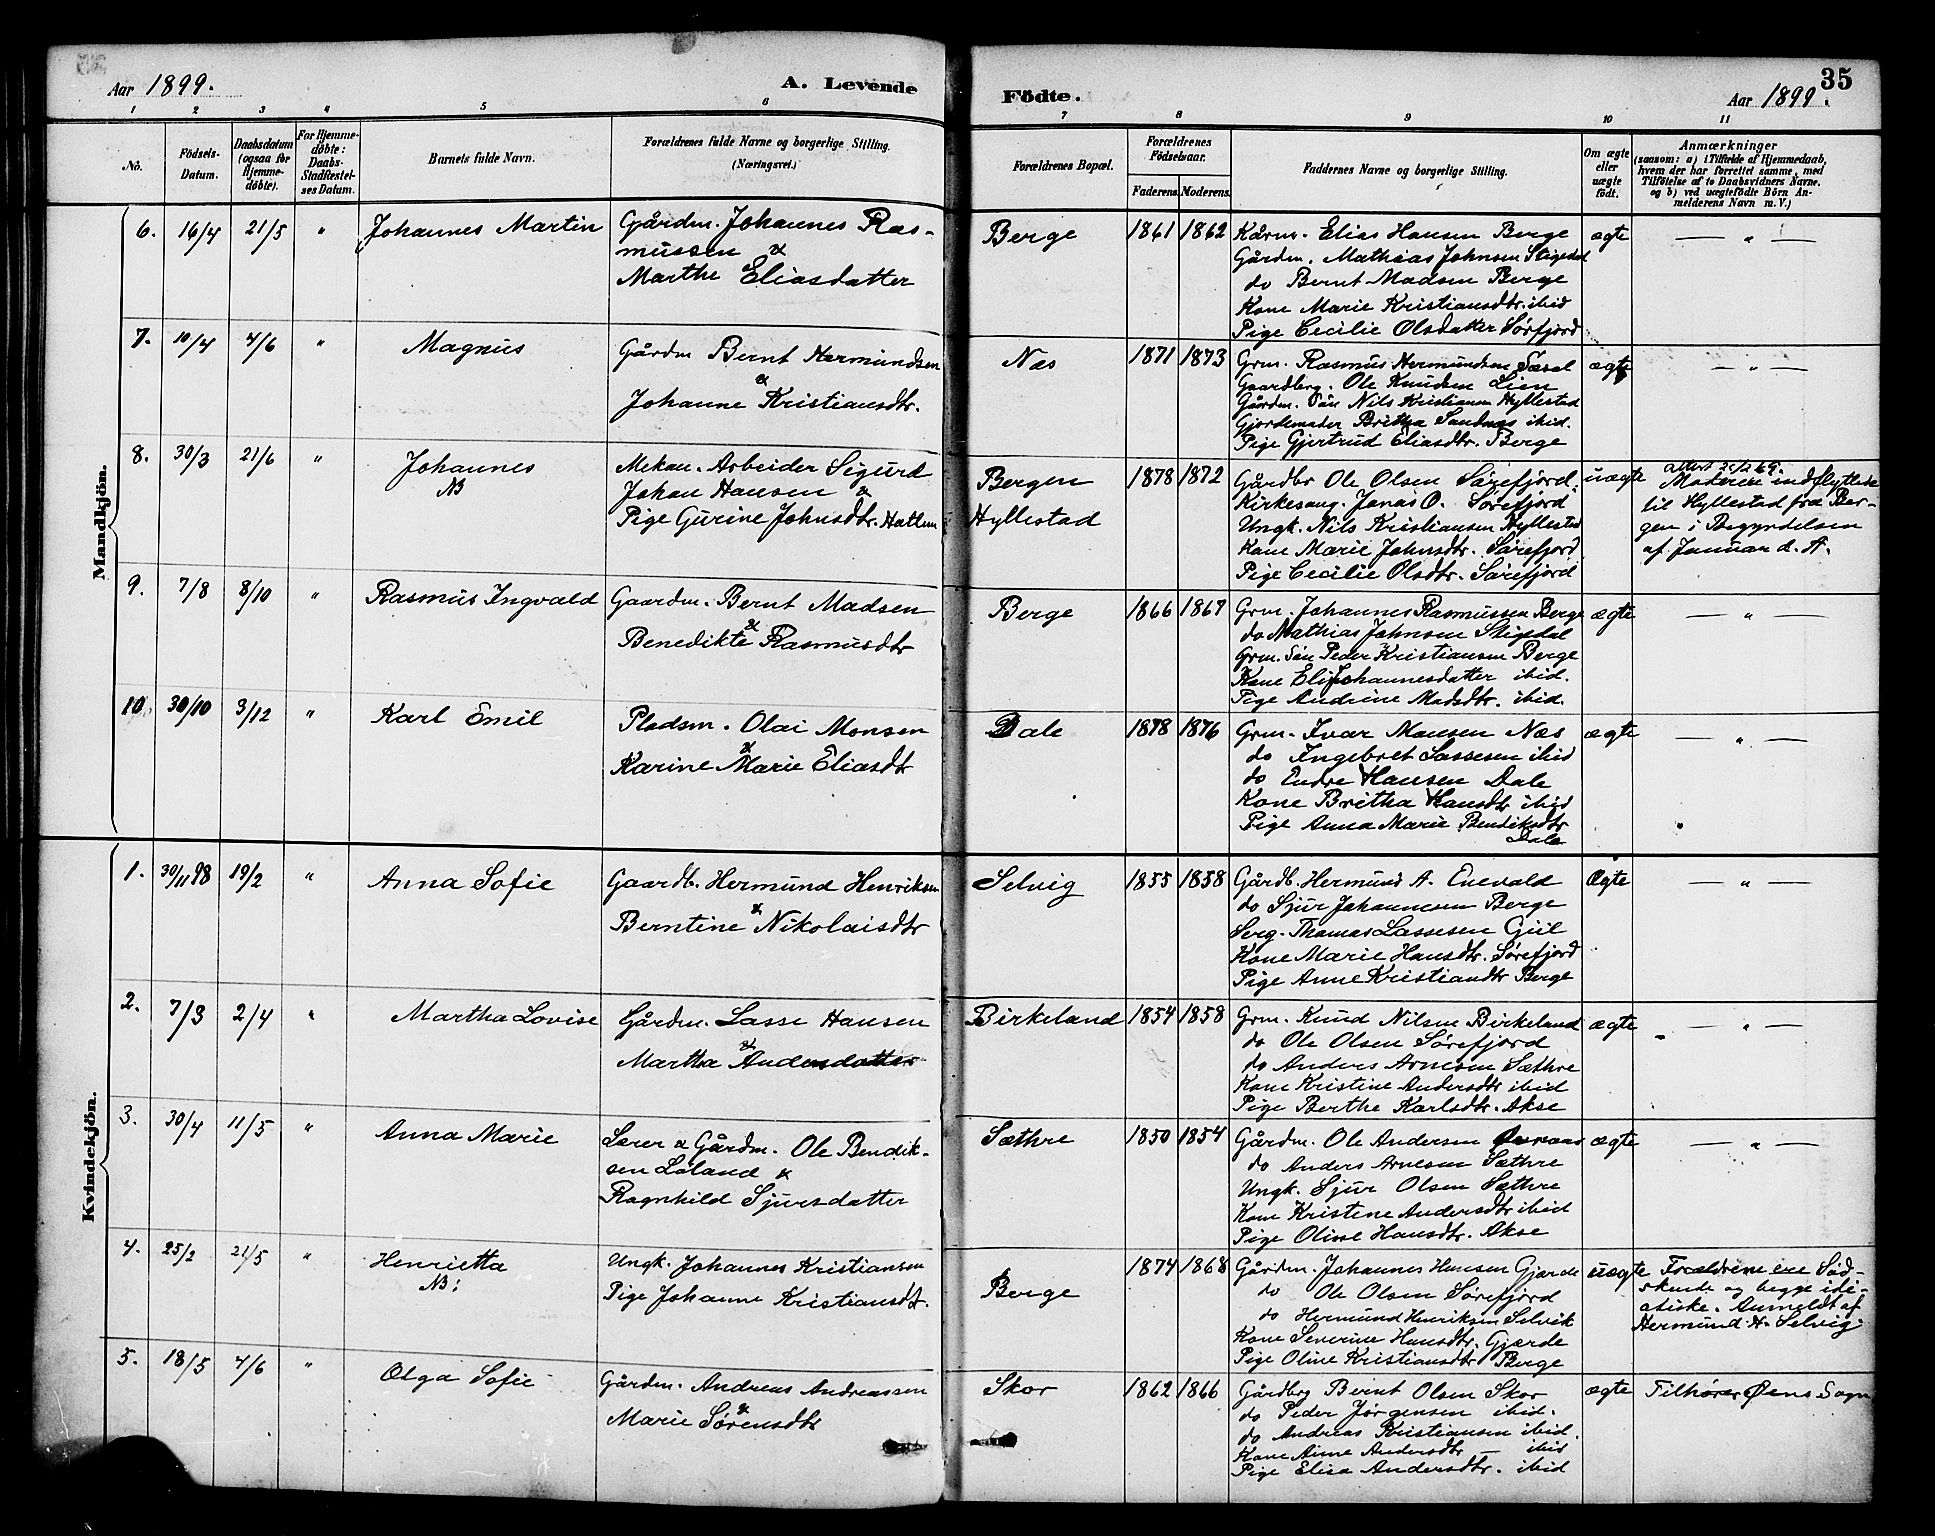 Aar 1899. A. Levende Födte. Aar 1899. 35
1 2 3 4 5 6 7 8 9 10 11
No. Födsels-Datum. Daabsdatum (ogsaa for Hjemmedöbte). For Hjemmedöbte: Daabs-Stadfæstelses Datum. Barnets fulde Navn. Forældrenes fulde Navne og borgerlige Stilling. (Næringsvei.) Forældrenes Bopæl. Forældrenes Födselsaar. Faderens. Moderens. Faddernes Navne og borgerlige Stilling. Om ægte eller uægte födt. Anmærkninger (saasom: a) i Tilfælde af Hjemmedaab, hvem der har forrettet samme, med Tilföielse af to Daabsvidners Navne, og b) ved uægtefödte Börn Anmelderens Navn m. V.)
Mandkjön.
6. 16/4 21/5 " Johannes Martin Gårdm. Johannes Ras-
mussen &
Marthe Eliasdatter
Berge 1861 1862 Kårm. Elias Hansen Berge ægte — " —
Gårdm. Mathias Johnsen Stigedal
do Bernt Madsen Berge
Kone Marie Kristiansdtr. ibid
Pige Cecilie Olsdatter Sørfjord
7. 10/4 4/6 " Magnus Gårdm Bernt Hermundsen
&
Johanne Kristiansdtr.
Næs 1871 1873 Grm. Rasmus Hermundsen ægte — " —
Gaardbrg. Ole Knudsen Lien
Gårdm. Søn Nils Kristiansen Hyllestad
Gjordemoder Britha Sandnæs ibid.
Pige Gjertrud Eliasdtr. Berge
8. 30/3 21/6 " Johannes
NB
Mekan. Arbeider Sigurd
Johan Hansen &
Pige Gurine Johnsdtr. Hatlem
Bergen
Hyllestad
1878 1872 Gårdbr Ole Olsen Sørefjord. uægte
Kirkesang. Jonas O. Sørefjord
Ungk. Nils Kristiansen Hyllestad
Kone Marie Johnsdtr. Sørefjord
Pige Cecilie Olsdtr. Sørefjord
Moderen indflyttede
til Hyllestad fra Ber-
gen i Begyndelsen
af Januar d. A.
9. 7/8 8/10 " Rasmus Ingvald Gaardm. Bernt Madsen
&
Benedikte Rasmusdtr
Berge 1866 1867 Grm. Johannes Rasmussen Berge ægte — " —
do Mathias Johnsen Stigedal
Grm. Søn Peder Kristiansen Berge
Kone Eli Johannesdatter ibid.
Pige Andrine Madsdtr. ibid.
10. 30/10 3/12 " Karl Emil Pladsm. Olai Monsen
&
Karine Marie Eliasdtr
Dale 1878 1876 Grm. Ivar Monsen Næs ægte — " —
do Ingebret Lassesen ibid
do Endre Hansen Dale
Kone Britha Hansdtr ibid
Pige Anna Marie Bendiksdtr
Dale
Kvindekjön.
1. 30/11 98 19/2 " Anna Sofie Gaardb. Hermund Henriksen
&
Berntine Nikolaisdtr
Selvig 1855 1858 Gårdb. Hermund A. Enevald Ægte — " —
do Sjur Johannesen Berge
Serg. Thomas Lassesen Gjil
Kone Marie Hansdtr. Sørefjord
Pige Anne Kristiandtr Berge
2. 7/3 2/4 " Martha Lovise Gårdm. Lasse Hansen
&
Martha Andersdatter
Birkeland 1854 1858 Grm. Knud Nilsen Birkeland ægte — " —
do Ole Olsen Sørefjord
do Anders Arnesen Sæthre
Kone Kristine Andersdtr ibid
Pige Berthe Karlsdtr. Akse
3. 30/4 11/5 " Anna Marie Lærer & Gårdm. Ole Bendik-
sen Loland &
Ragnhild Sjursdatter
Sæthre 1850 1854 Gårdm. Ole Andersen ægte — " —
do Anders Arnesen Sæthre
Ungk. Sjur Olsen Sæthre
Kone Kristine Andersdtr ibid
Pige Oline Hansdtr. Akse
4. 25/2 21/5 " Henrietta
NB:
Ungk. Johannes Kristiansen
Pige Johanne Kristiansdtr.
Berge 1874 1868 Gårdm. Johannes Hansen Gjærde uægte
do Ole Olsen Sørefjord
do Hermund Henriksen Selvik
Kone Severine Hansdtr. Gjærde
Pige Oline Kristiansdtr Berge
Forældrene ere Sød-
skende og begge idi-
otiske. Anmeldt af
Hermund H. Selvig.
5. 18/5 4/6 " Olga Sofie Gårdm. Andreas Andreassen
&
Marie Sørensdtr
Skor 1862 1866 Gårdbrg Bernt Olsen Skor ægte Tilhører Øens Sogn
do Peder Jørgensen ibid.
do Andreas Kristiansen ibid.
Kone Anne Andersdtr — ibid
Pige Elisa Andersdtr. ibid